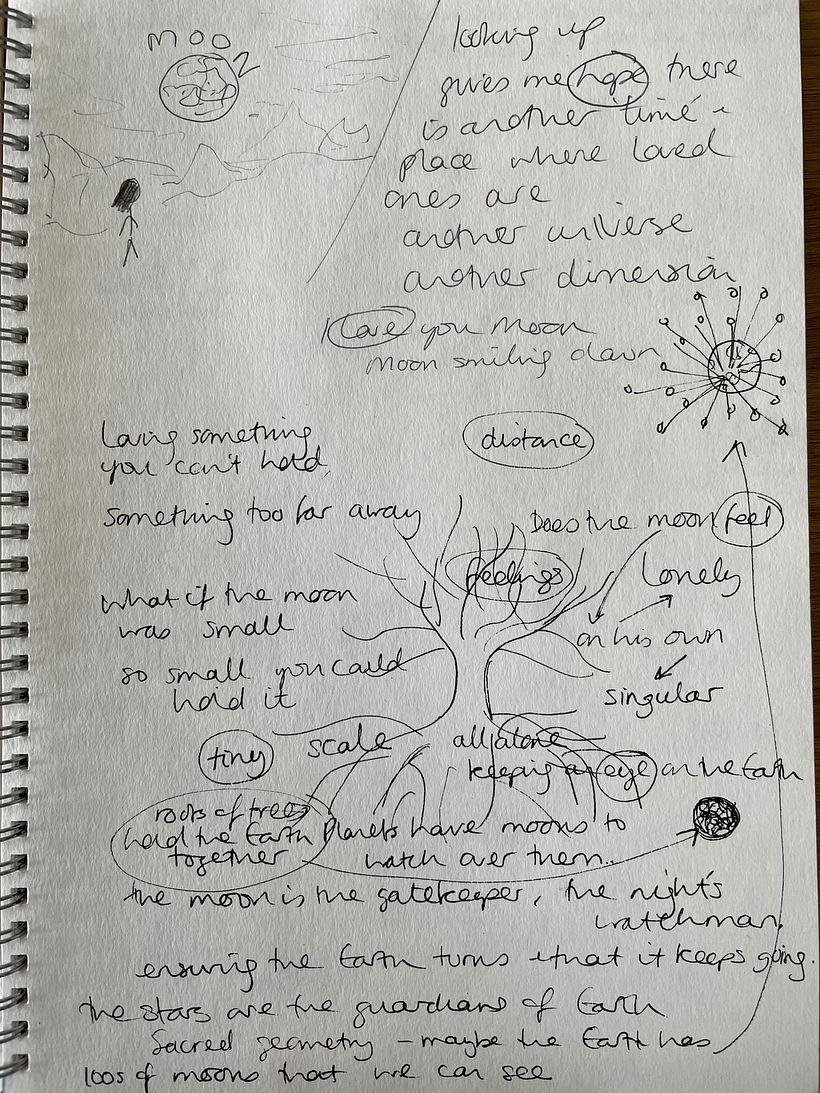 MOON
looking up
gives me hope there
is another time &
place where loved
ones are
another universe
another dimension
I love you moon
moon smiling down
distance
Loving something
you can't hold
Something too far away
Does the moon feel
feelings
Lonely
on his own
singular
what if the moon
was small
so small you could
hold it
tiny
scale
all alone
keeping an eye on the Earth
roots of trees
hold the Earth
together
Planets have moons to
watch over them..
the moon is the gatekeeper, the night's
watchman,
ensuring the Earth turns & that it keeps going.
the stars are the guardians of Earth
Sacred geometry – maybe the Earth has
100s of moons that we can see